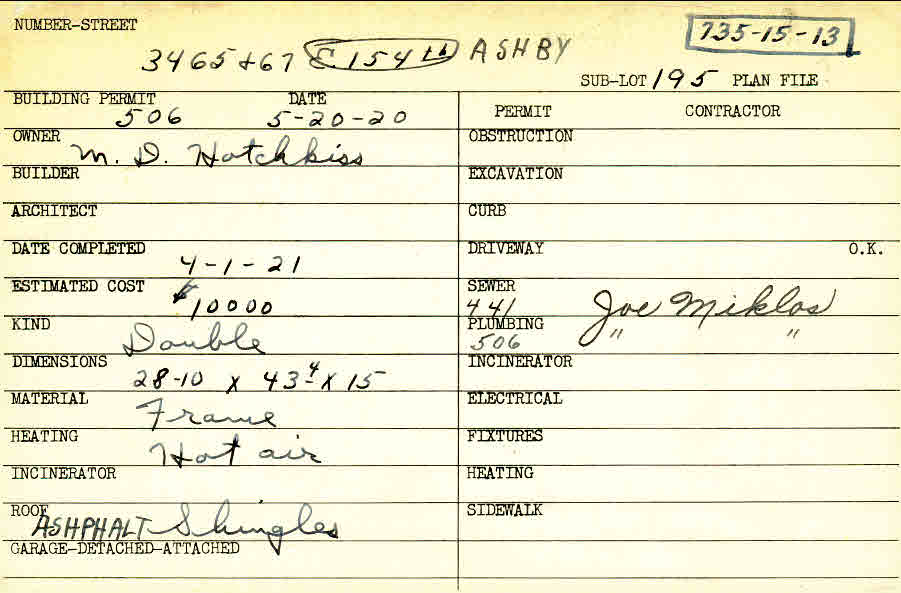 NUMBER-STREET
3465+67 E 154th ASHBY
735-15-13
SUB-LOT 195 PLAN FILE
BUILDING PERMIT DATE
506 5-20-20
OWNER
M. D. Hotchkiss
BUILDER
ARCHITECT
DATE COMPLETED
4-1-21
ESTIMATED COST
$10000
KIND
Double
DIMENSIONS
28-10 x 43-4 x 15
MATERIAL
Frame
HEATING
Hot air
INCINERATOR
ROOF
ASHPHALT Shingles
GARAGE-DETACHED-ATTACHED
PERMIT CONTRACTOR
OBSTRUCTION
EXCAVATION
CURB
DRIVEWAY O.K.
SEWER
441 Joe Miklos
PLUMBING
506 " "
INCINERATOR
ELECTRICAL
FIXTURES
HEATING
SIDEWALK